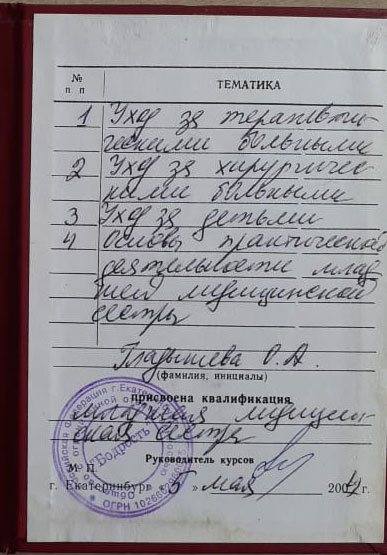 №
п п
ТЕМАТИКА
1 Уход за терапевти-
ческими больными
2 Уход за хирургичес-
кими больными
3 Уход за детьми
4 Основы практической
деятельности млад
шей медицинской
сестры
Гладышева О. А.
(фамилия, инициалы)
присвоена квалификация
младшая медицин-
ская сестра
Руководитель курсов
М. П.
г. Екатеринбург « 5 » мая 2004 г.
"Бодрость"